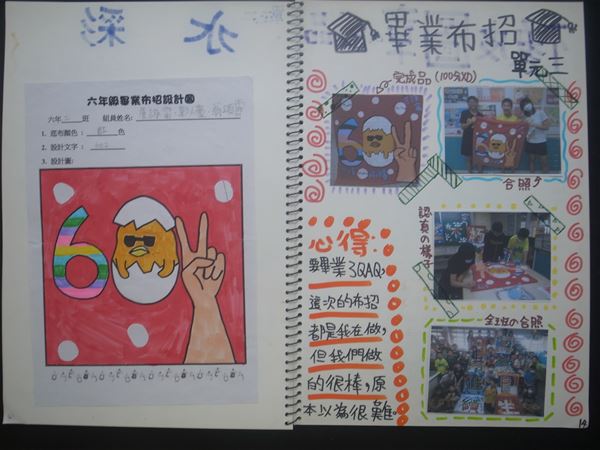 六年級畢業布招設計圖
六年二班 組員姓名:
1. 底布顏色: 紅 色
2. 設計文字: 602
3. 設計圖:
60
畢業布招
單元三
完成品(100分XD)
合照
認真の樣子
全班の合照
心得:
畢業了QAQ,
這次的布招
都是我在做,
但我們做
的很棒,原
本以為很難。
14